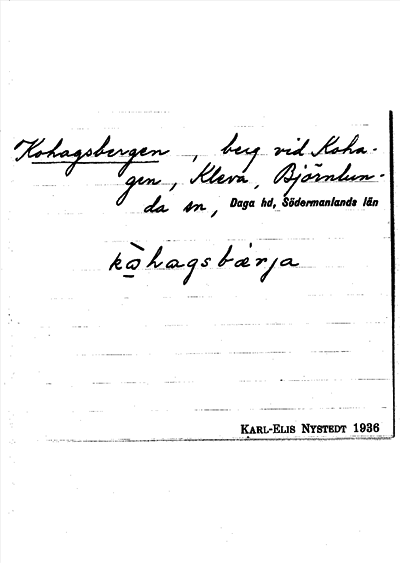 Kohagsbergen, berg vid Koha-
gen, Kleva, Björnlun-
da sn, Daga hd, Södermanlands län
kò̱hagsbærja
KARL-ELIS NYSTEDT 1936